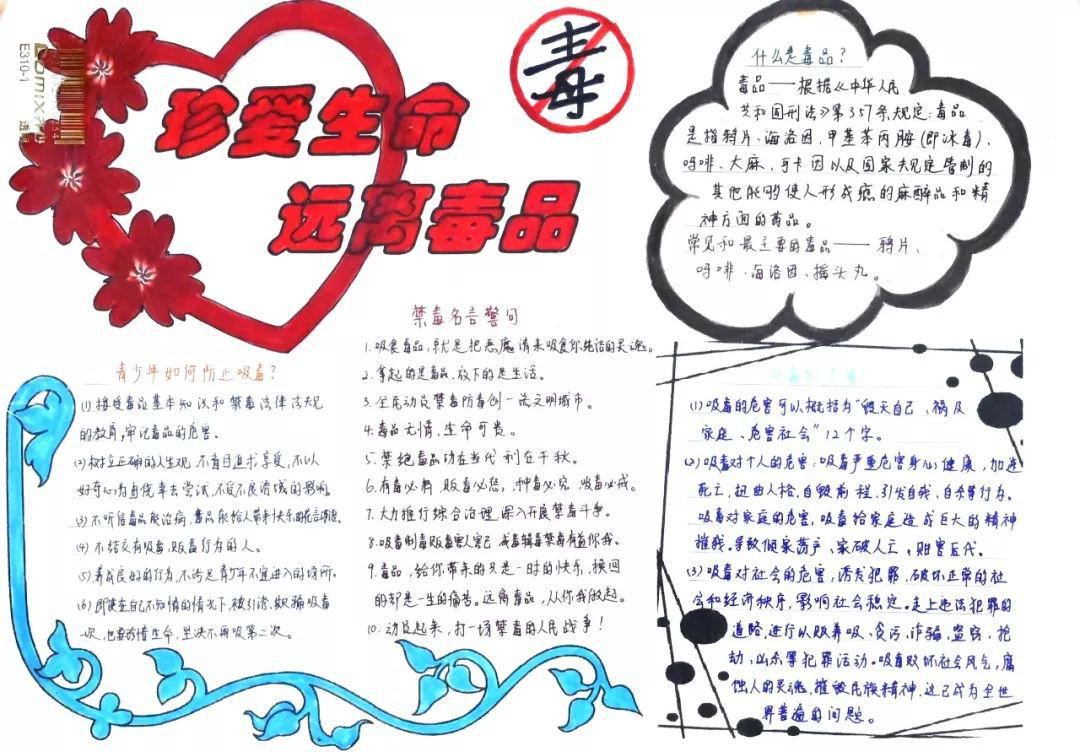 comix
E310-1
珍爱生命
远离毒品
毒
什么是毒品？
毒品——根据《中华人民
共和国刑法》第357条规定：毒品
是指鸦片、海洛因、甲基苯丙胺(即冰毒)、
吗啡、大麻、可卡因以及国家规定管制的
其他能够使人形成瘾的麻醉品和精
神方面的药品。
常见和最主要的毒品——鸦片、
吗啡、海洛因、摇头丸。
青少年如何防止吸毒？
(1)接受毒品基本知识和禁毒法律法规
的教育,牢记毒品的危害。
(2)树立正确的人生观,不盲目追求享受,不以
好奇心为由侥幸去尝试,不受不良诱惑的影响。
(3)不听信毒品能治病,毒品能给人带来快乐的花言巧语。
(4)不结交有吸毒、贩毒行为的人。
(5)养成良好的行为,不涉足青少年不宜进入的场所。
(6)即使在自己不知情的情况下,被引诱、欺骗吸毒
一次,也要珍惜生命,坚决不再吸第二次。
禁毒名言警句
1.吸食毒品,就是把恶魔请来吸食你纯洁的灵魂。
2.拿起的是毒品,放下的是生活。
3.全民动员禁毒防毒创一流文明城市。
4.毒品无情,生命可贵。
5.禁绝毒品功在当代利在千秋。
6.有毒必肃 贩毒必惩,种毒必究 吸毒必戒。
7.大力推行综合治理 深入开展禁毒斗争。
8.吸毒制毒贩毒害人害己 戒毒缉毒禁毒有益你我。
9.毒品,给你带来的只是一时的快乐,换回
的却是一生的痛苦。远离毒品,从你我做起。
10.动员起来,打一场禁毒的人民战争！
(1)吸毒的危害可以概括为“毁灭自己、祸及
家庭、危害社会”12个字。
(2)吸毒对个人的危害:吸毒严重危害身心健康,加速
死亡,扭曲人格,自毁前程,引发自残、自杀等行为。
吸毒对家庭的危害,吸毒给家庭造成巨大的精神
摧残。导致倾家荡产、家破人亡、贻害后代。
(3)吸毒对社会的危害:诱发犯罪、破坏正常的社
会和经济秩序,影响社会稳定。走上违法犯罪的
道路,进行以贩养吸、贪污、诈骗、盗窃、抢
劫、凶杀等犯罪活动。吸毒败坏社会风气,腐
蚀人的灵魂,摧毁民族精神,这已成为全世
界普遍的问题。